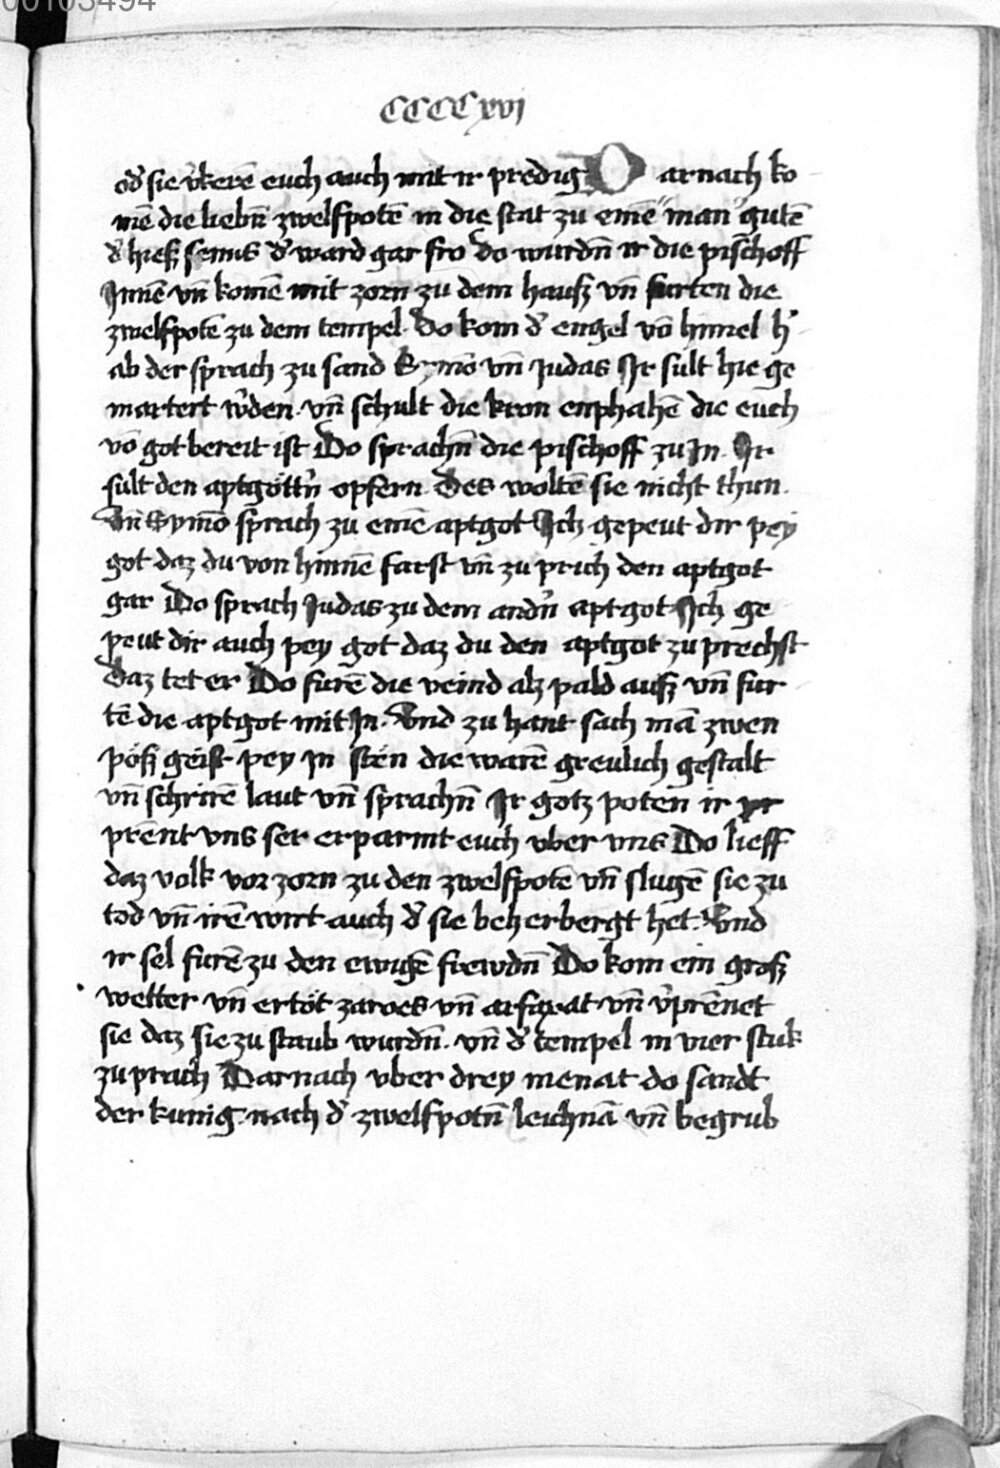 00103494
CCCCxvj
od̕ sie v̕kerē euch auch mit ir predig Darnach ko
mē die liebn̄ zwelfpotē in die stat zu einē man gutē
d̕ hieß senus d̕ ward gar fro do wurdn̄ ir die pischoff
Innē vn̄ komē mit zorn zu dem hauß vn̄ furten die
zwelfpotē zu dem tempel Do kom d̕ engel vō himel h̕
ab der sprach zu sand Symō vn̄ Judas Ir sult hie ge
martert w̕den vn̄ schult die kron enphahē die euch
vō got bereit ist Do sprachn̄ die pischoff zu In Ir
sult den aptgöttn̄ opfern Des woltē sie nicht thun
Vn̄ Symō sprach zu einē aptgot Ich gepeut dir pey
got daz du von hinnē farst vn̄ zu prich den aptgot
gar Do sprach Judas zu dem andn̄ aptgot Ich ge
peut dir auch pey got daz du den aptgot zu prechst
Daz tet er Do furē die veind alz pald auß vn̄ fur
tē die aptgot mit In Vnd zu hant sach mā zwen
pöß geist pey In sten die warē greulich gestalt
vn̄ schrirē laut vn̄ sprachn̄ Ir gotz poten ir
prēnt vns ser erparmt euch vber vns Do lieff
daz volk vor zorn zu den zwelfpotē vn̄ slugē sie zu
tod vn̄ irē wirt auch d̕ sie beherbergt het Vnd
ir sel furē zu den ewigē frewdn̄ Do kom ein groß
wetter vn̄ ertöt zaroes vn̄ arfaxat vn̄ v̕prēnet
sie daz sie zu staub wurdn̄ vn̄ d̕ tempel in vier stuk
zu prach Darnach vber drey menat do sandt
der kunig nach d̕ zwelfpotn̄ leichnā vn̄ begrub